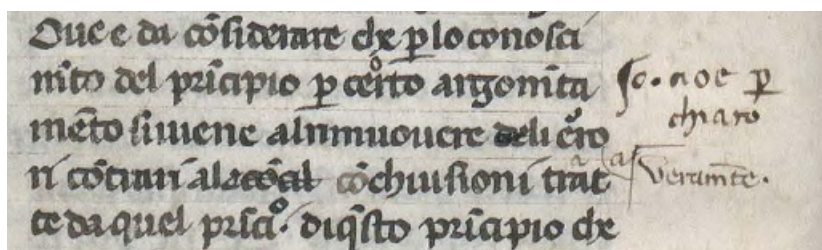 Oue e da cõsiderare che p̱ lo conosci
mẽto del prĩcipio p̱ certo argomẽta
mẽto si uiene al rimuouere deli erro
ri cõtrari ala cõchiusioni trat
te da quel prĩcio. di q̃sto prĩcipio che
so. noe p̱
chiaro
veramẽte.